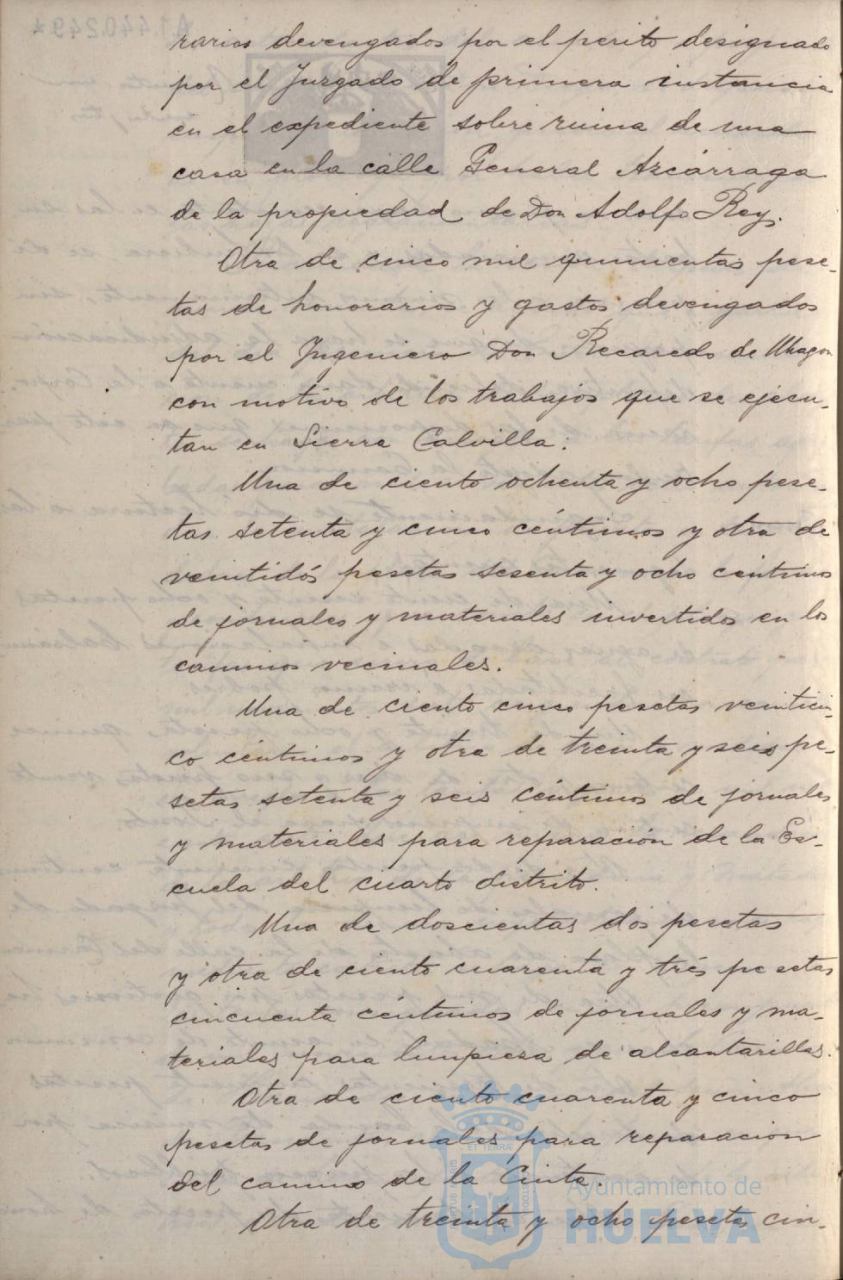 rarios devengados por el perito designado
por el Juzgado de primera instancia
en el expediente sobre ruina de una
casa en la calle General Azcárraga
de la propiedad de Don Adolfo Rey.
Otra de cinco mil quinientas pese-
tas de honorarios y gastos devengados
por el Ingeniero Don Recaredo de Uhagon
con motivo de los trabajos que se ejecu-
tan en Sierra Calvilla.
Una de ciento ochenta y ocho pese-
tas setenta y cinco céntimos y otra de
veintidós pesetas sesenta y ocho céntimos
de jornales y materiales invertidos en los
caminos vecinales.
Una de ciento cinco pesetas veinticin-
co céntimos y otra de treinta y seis pe-
setas setenta y seis céntimos de jornales
y materiales para reparación de la Es-
cuela del cuarto distrito.
Una de doscientas dos pesetas
y otra de ciento cuarenta y trés pesetas
cincuenta céntimos de jornales y ma-
teriales para limpieza de alcantarillas.
Otra de ciento cuarenta y cinco
pesetas de jornales para reparacion
del camino de la Cinta.
Otra de treinta y ocho pesetas cin-
Ayuntamiento de
HUELVA